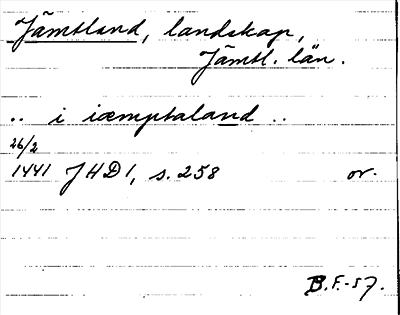 Jämtland, landskap,
Jämtl. län.
.. i iæmptaland ..
26/2
1441 JHD1, s. 258 or.
B.F.-57.